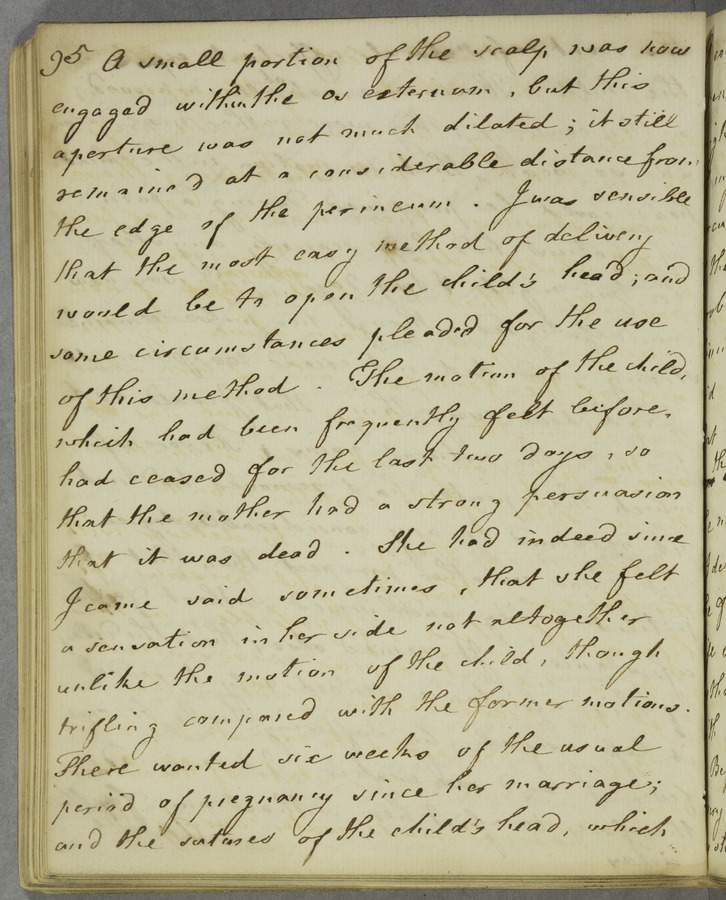 95 A small portion of the scalp was now
engaged within the os externum, but this
aperture was not much dilated; it still
remained at a considerable distance from
the edge of the perineum. I was sensible
that the most easy method of delivery
would be to open the child's head; and
some circumstances pleaded for the use
of this method. The motion of the child,
which had been frequently felt before,
had ceased for the last two days, so
that the mother had a strong persuasion
that it was dead. She had indeed since
I came said sometimes, that she felt
a sensation in her side not altogether
unlike the motion of the child, though
trifling compared with the former motions.
There wanted six weeks of the usual
period of pregnancy since her marriage;
and the sutures of the child's head, which